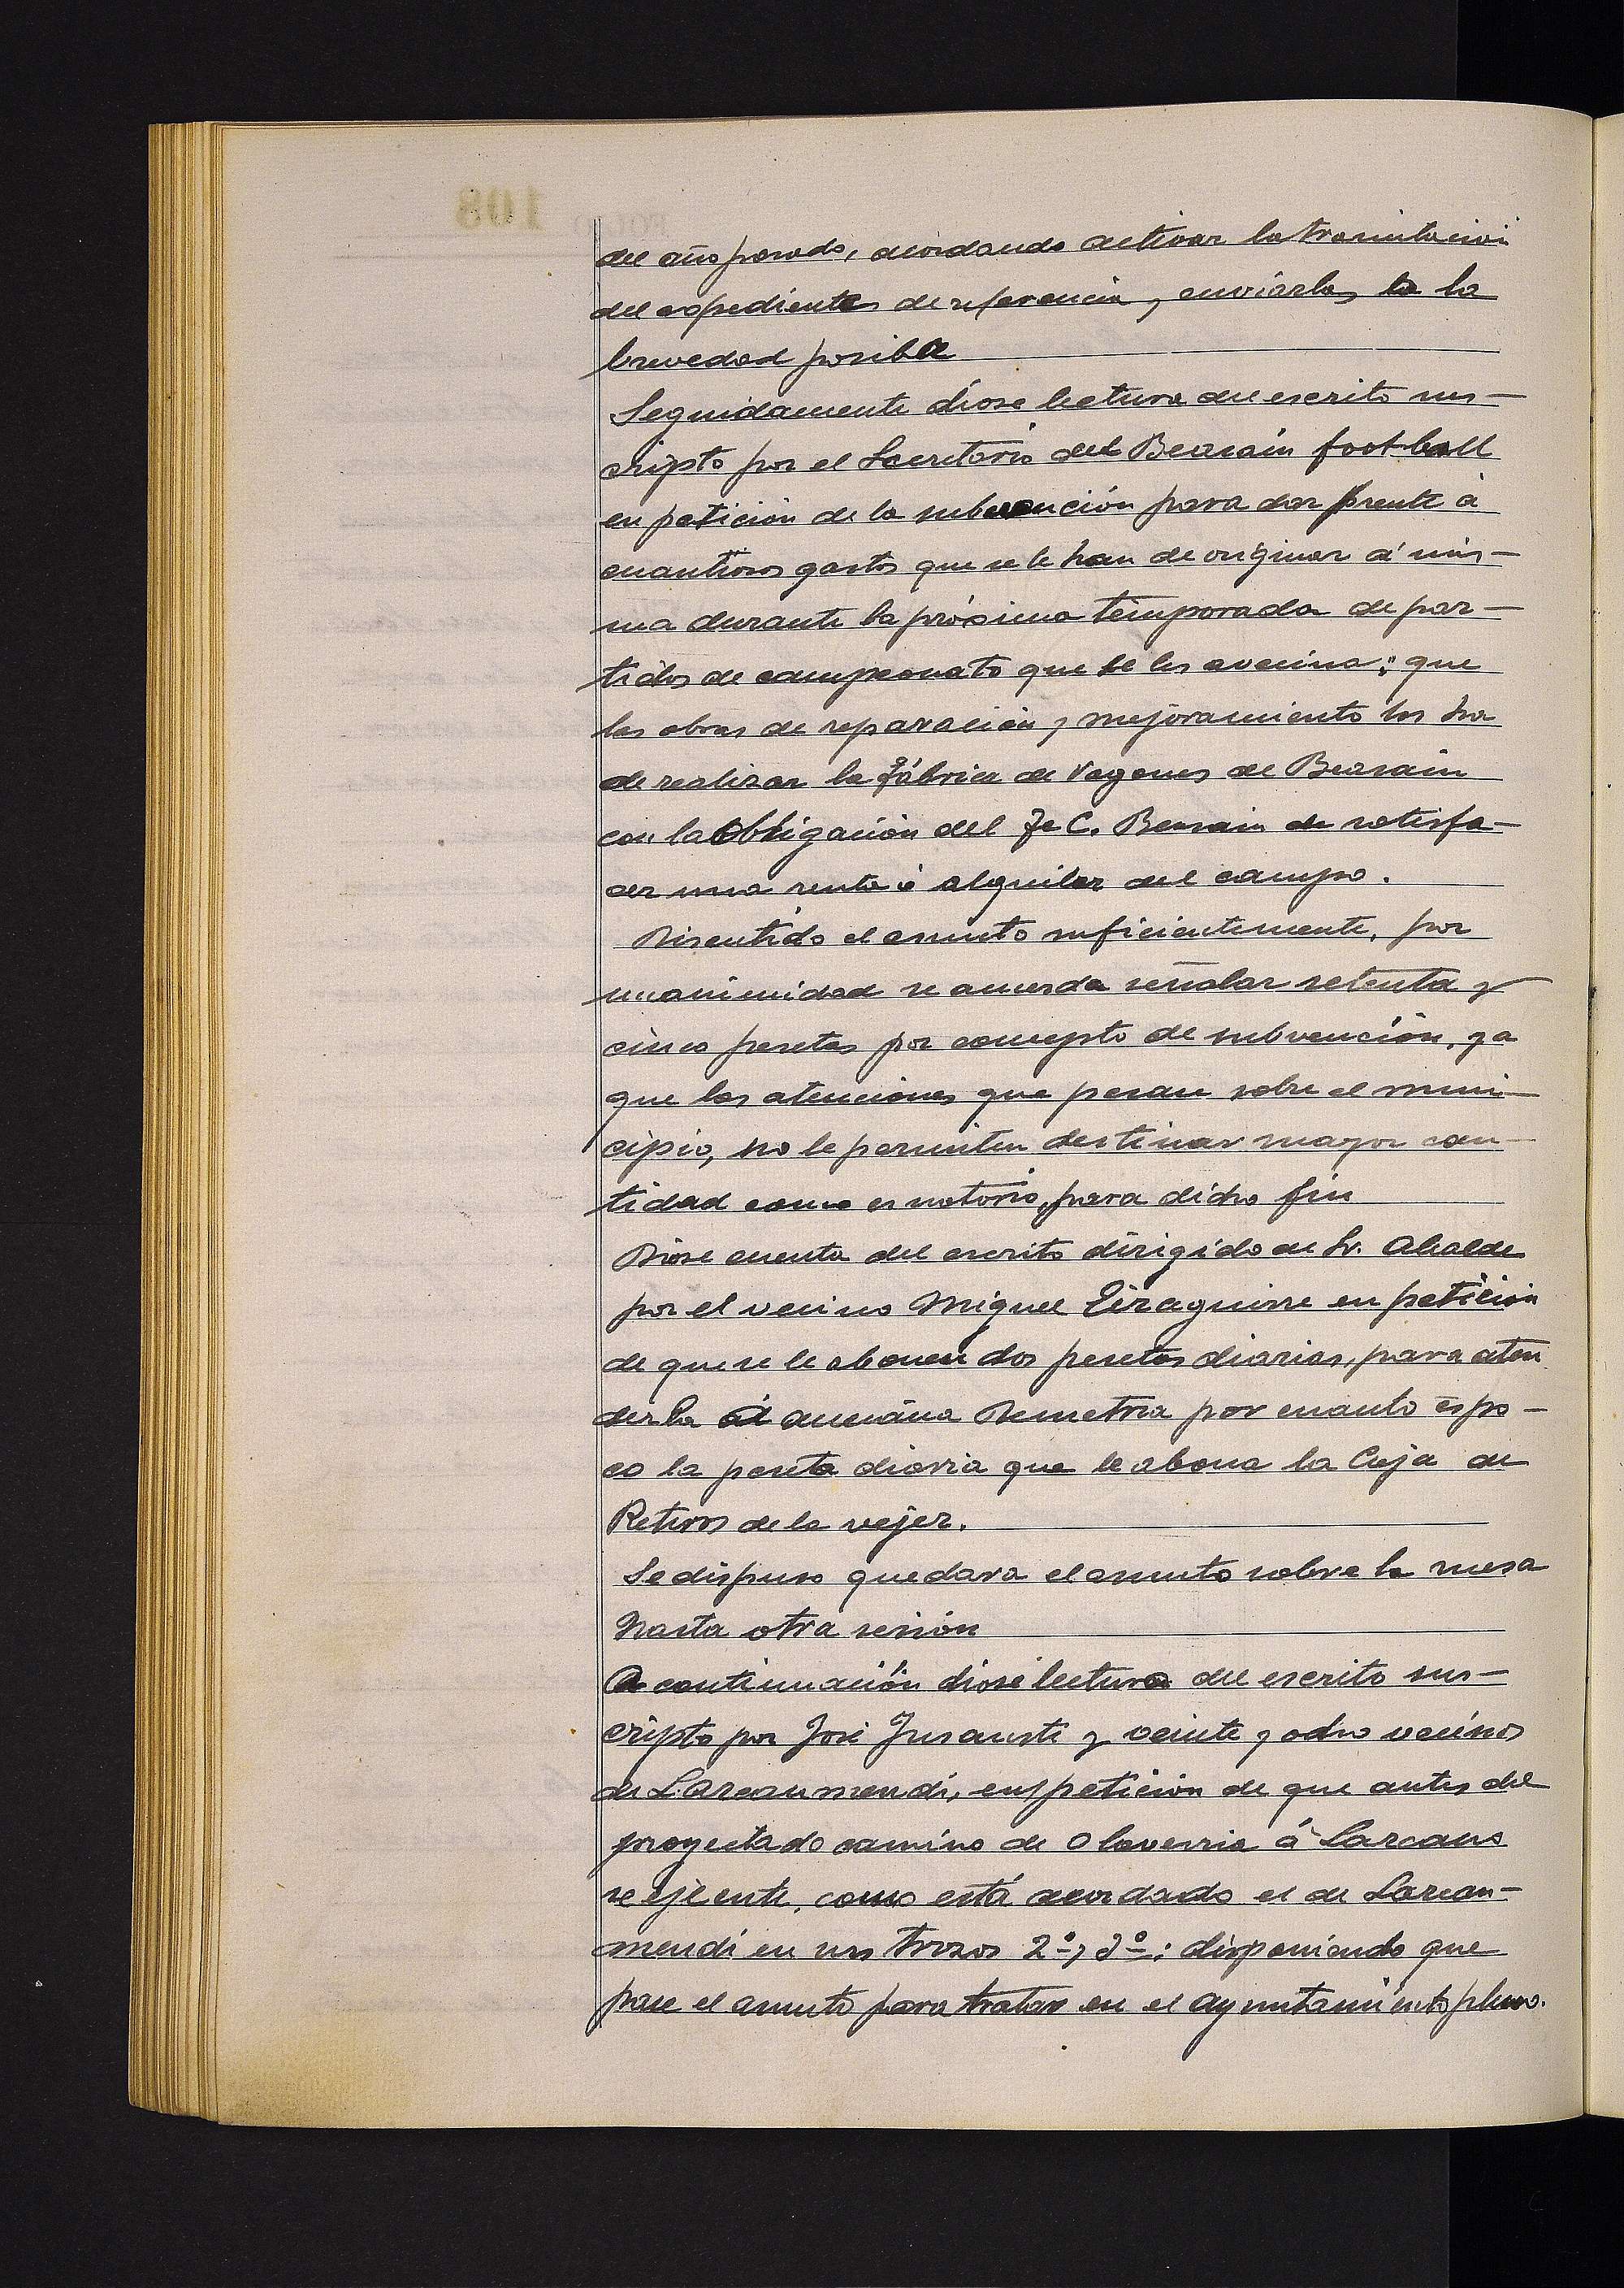 del año pasado, acordando activar la tramitación
del expedientes de referencia y enviarlas a la
brevedad posible
Seguidamente diose lectura del escrito sus-
cripto por el Secretario del Beasain foot-ball
en petición de la subvención para dar frente á
cuantiosos gastos que se le han de originar á mis-
ma durante la próxima temporada de par-
tidos de campeonato que se les avecina; que
las obras de reparación y mejoramiento los ha
de realizar la Fábrica de Vagones de Beasain
con la Obligación del F. C. Beasain de satisfa-
cer una renta ó alquiler del campo.
Discutido el asunto suficientemente, por
unanimidad se acuerda señalar setenta y
cinco pesetas por concepto de subvención, ya
que las atenciones que pesan sobre el muni-
cipio, no le permiten destinar mayor can-
tidad como es notorio, para dicho fin
Diose cuenta del escrito dirigido al Sr. Alcalde
por el vecino Miguel Eizaguirre en petición
de que se le abonen dos pesetas diarias, para aten
derla á anciana Demetria por cuanto es po-
co la peseta diaria que le abona la Caja de
Retiros de la vejez.
Se dispuso quedara el asunto sobre la mesa
hasta otra sesión
A continuación diose lectura del escrito sus-
cripto por José Insausti y veinte y ocho vecinos
de Larcaumendi, en petición de que antes del
proyectado camino de Olaverria á Lazcano
se ejecute, como está acordado el de Larcau-
mendi en sus trozos 2º y 3º; disponiendo que
pase el asunto para tratar en el ayuntamiento pleno.
FOLIO 108